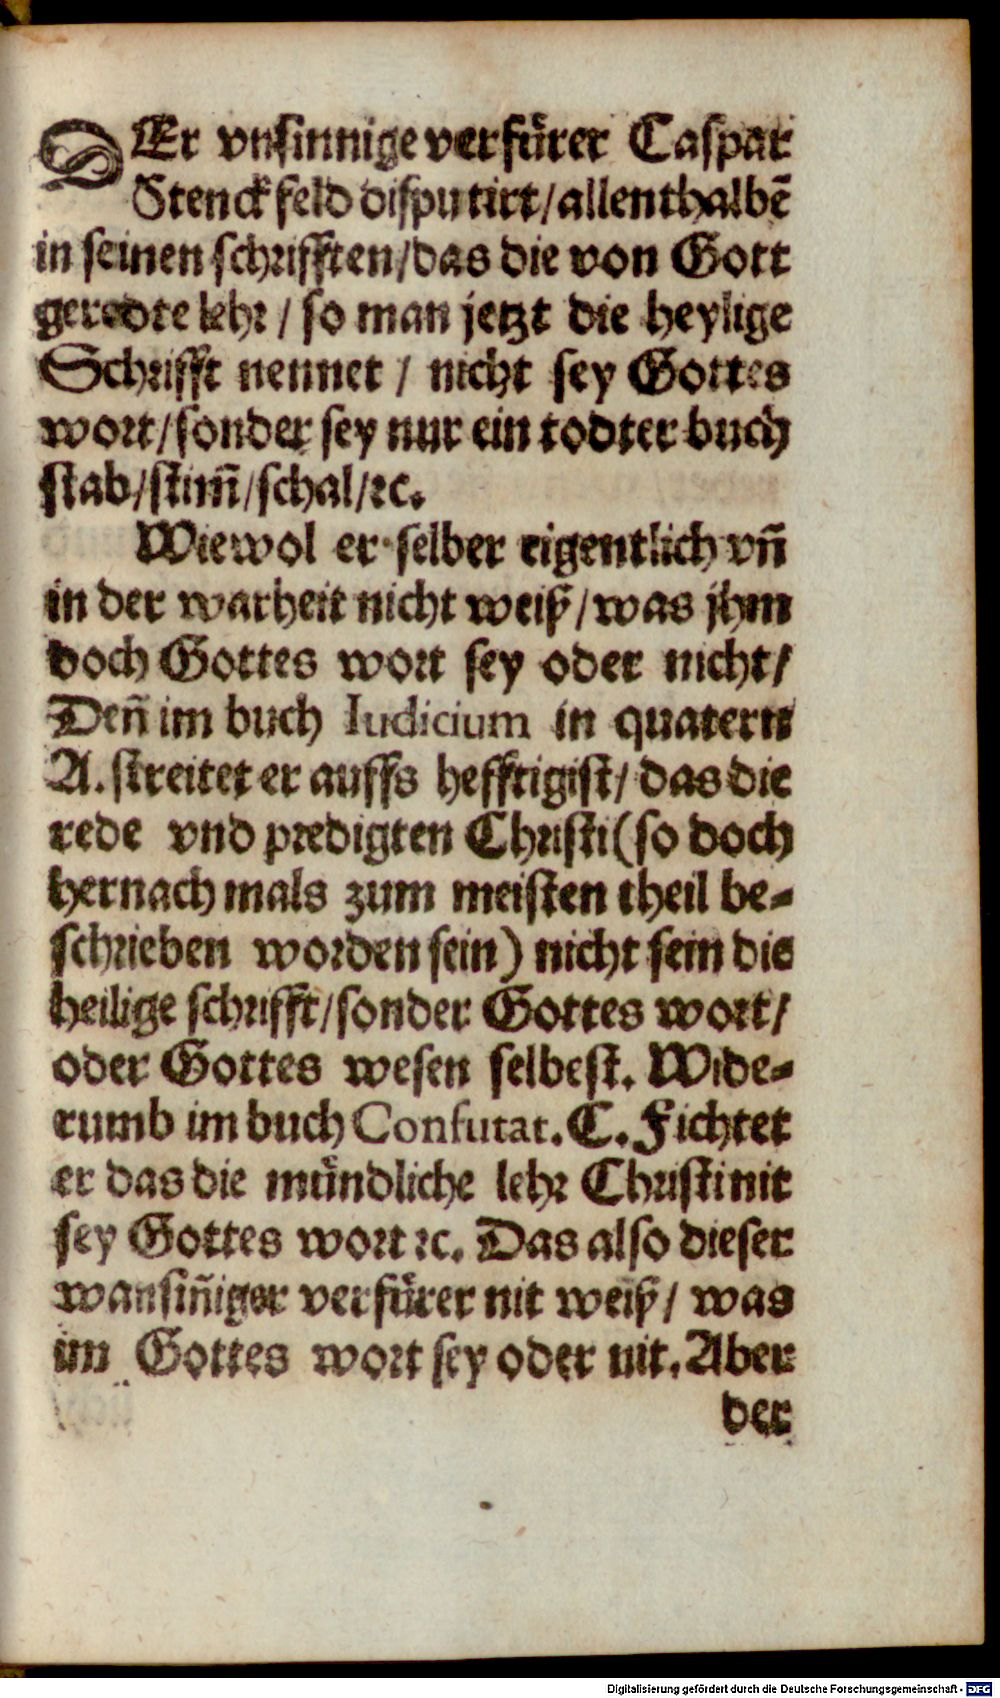 DEr vnsinnige verfürer Caspar
Stenckfeld disputirt/allenthalbē
in seinen schrifften/das die von Gott
geredte lehr/ so man jetzt die heylige
Schrifft nennet / nicht sey Gottes
wort/sonder sey nur ein todter buch
stab/stim̄/schal/ꝛc.
Wiewol er selber eigentlich vn̄
in der warheit nicht weiß/was jhm
doch Gottes wort sey oder nicht/
Den̄ im buch Iudicium in quatern
A. streitet er auffs hefftigist/das die
rede vnd predigten Christi(so doch
hernachmals zum meisten theil be-
schrieben worden sein) nicht sein die
heilige schrifft/sonder Gottes wort/
oder Gottes wesen selbest. Wide-
rumb im buch Confutat. C. Fichtet
er das die mündliche lehr Christi nit
sey Gottes wort ꝛc. Das also dieser
wansin̄iger verfürer nit weiß/ was
im Gottes wort sey oder nit. Aber
der
Digitalisierung gefördert durch die Deutsche Forschungsgemeinschaft - DFG